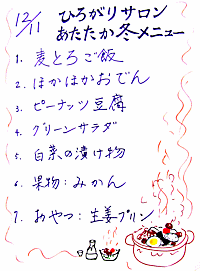 12/11 ひろがりサロン
あたたか冬メニュー
1. 麦とろご飯
2. ほかほかおでん
3. ピーナッツ豆腐
4. グリーンサラダ
5. 白菜の漬け物
6. 果物:みかん
7. おやつ:生姜プリン